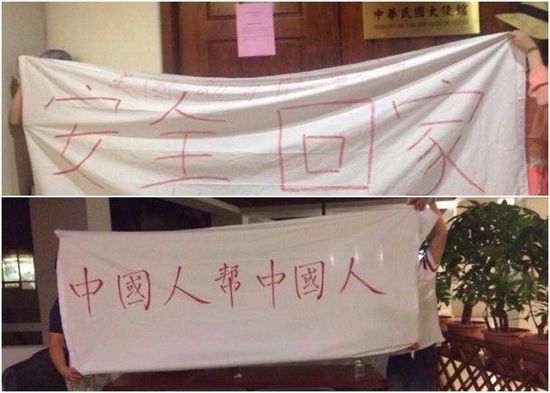 中華民國大使館
EMBASSY OF THE REPUBLIC OF CHINA
安全回家
中國人帮中國人